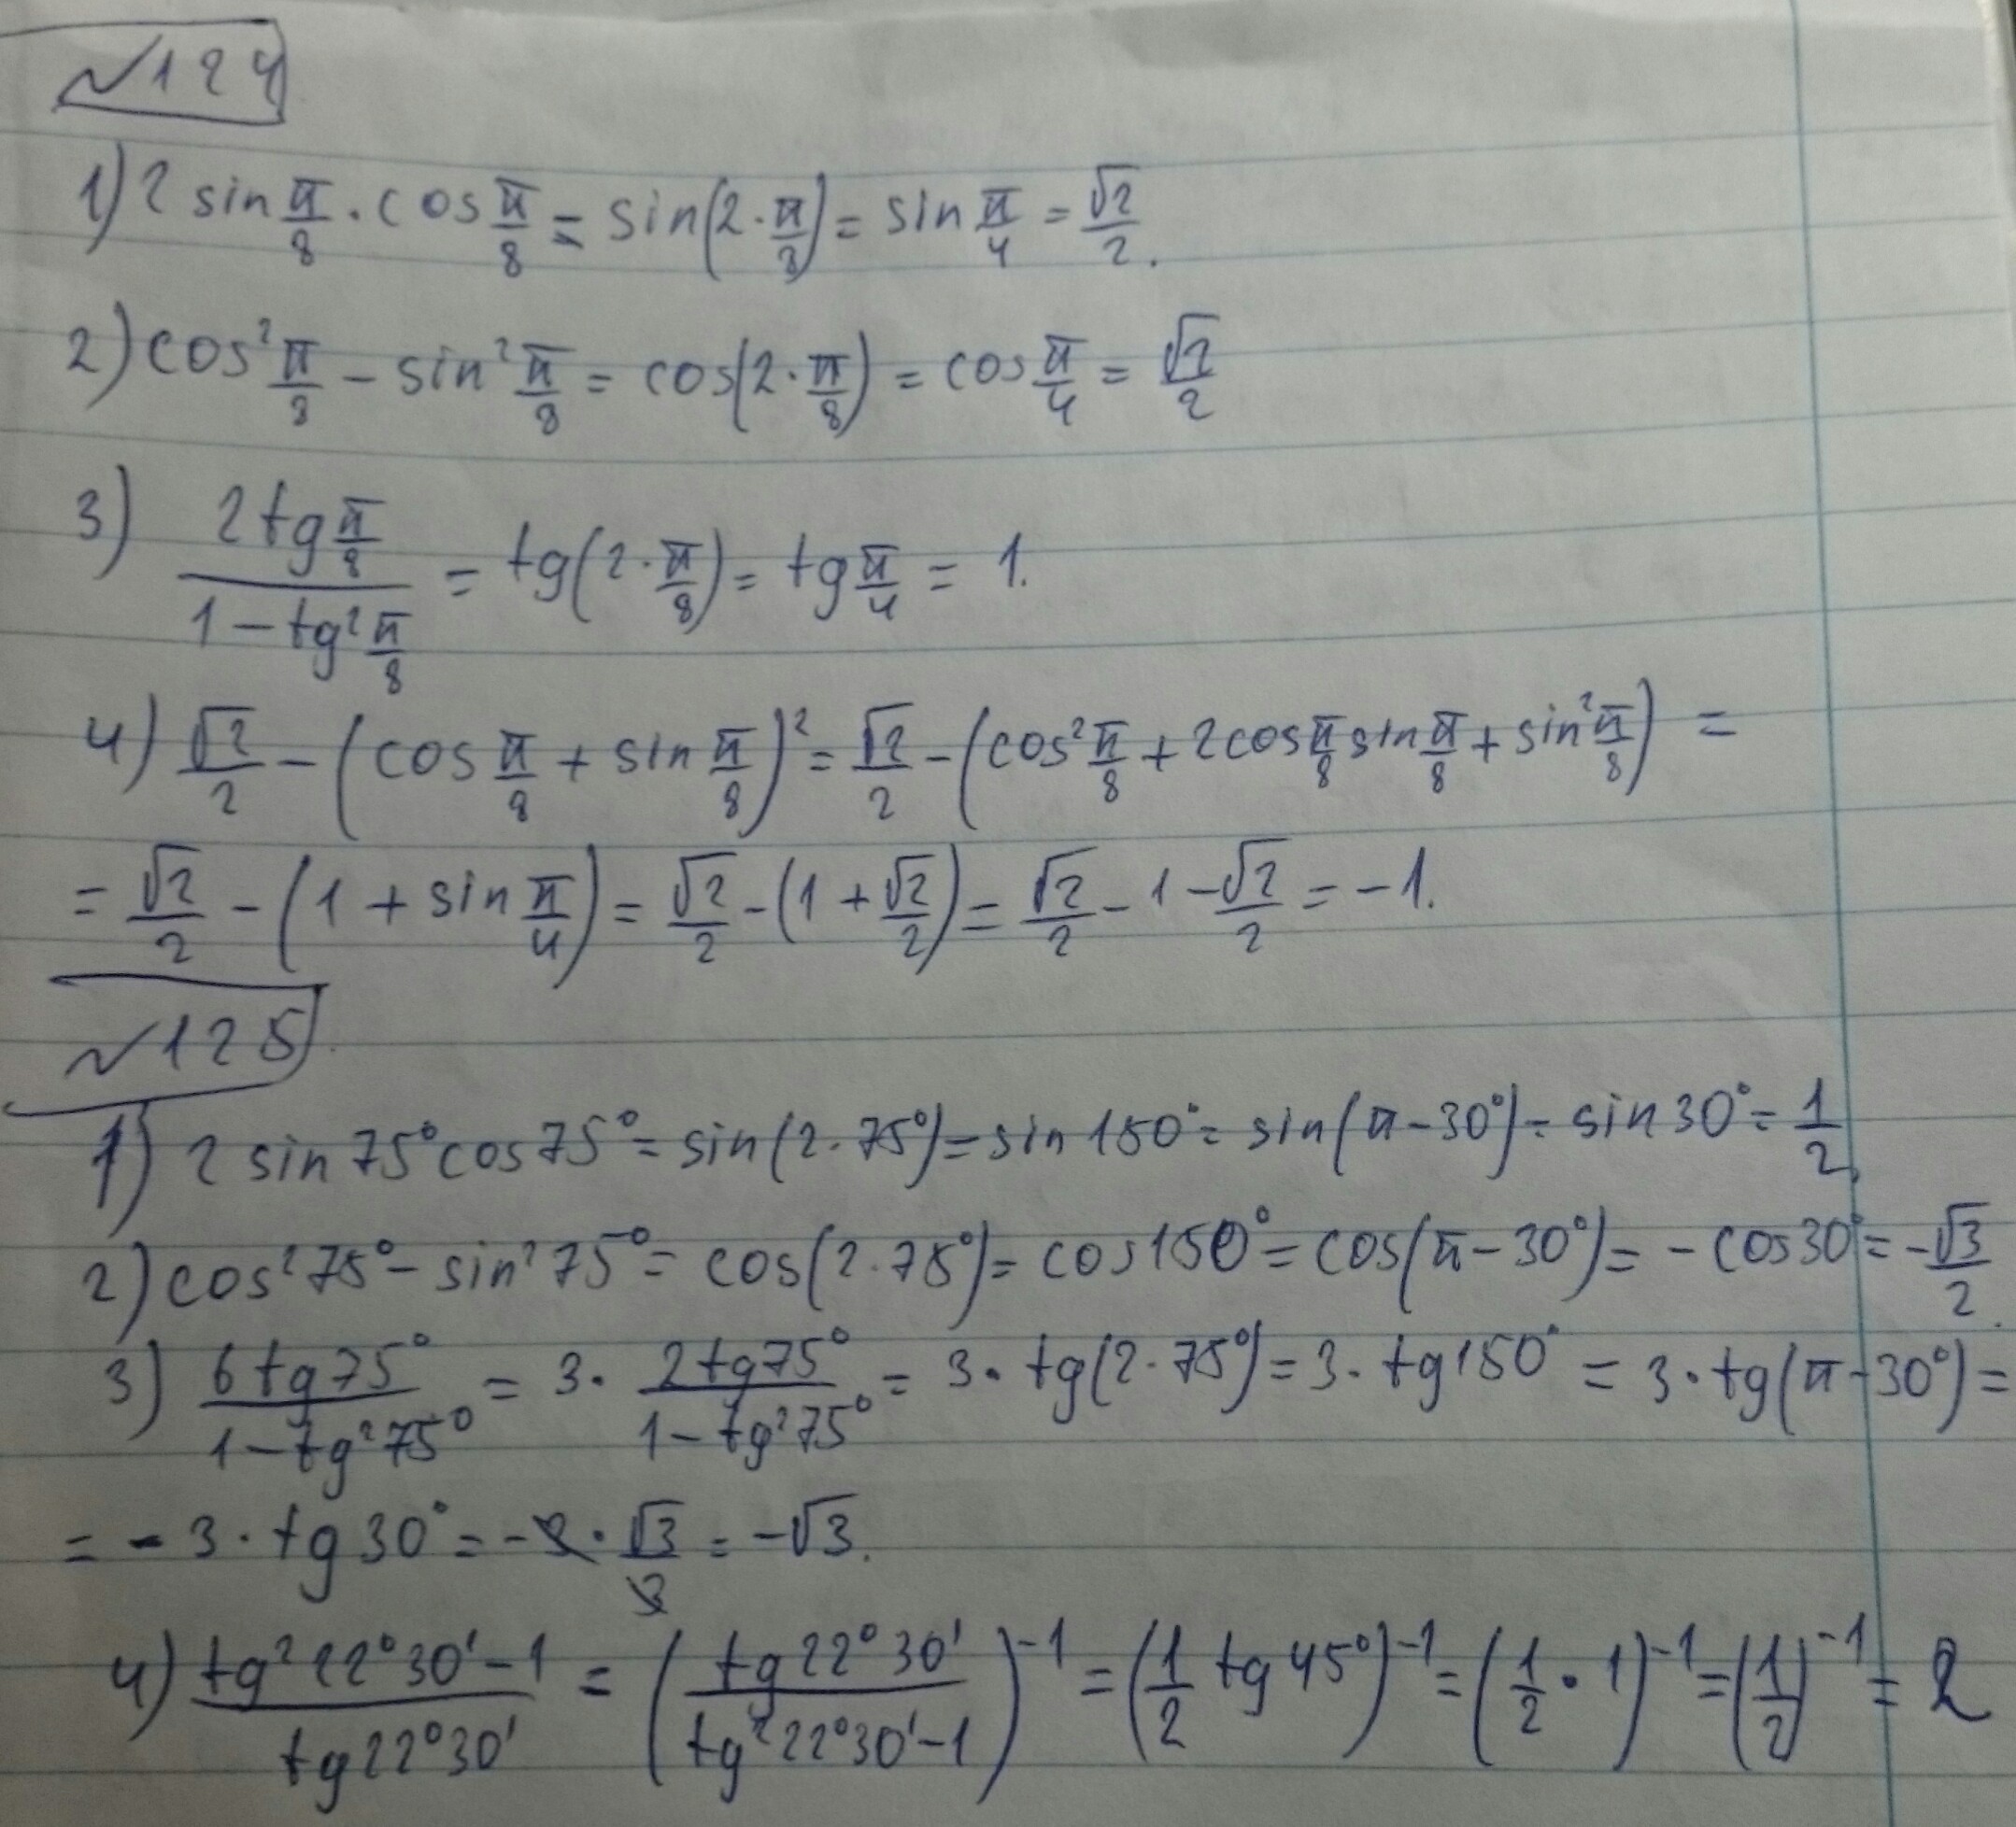 №124
1) 2 sin π/8 · cos π/8 = sin(2 · π/8) = sin π/4 = √2/2.
2) cos² π/8 − sin² π/8 = cos(2 · π/8) = cos π/4 = √2/2
3) (2tg π/8)/(1 − tg² π/8) = tg(2 · π/8) = tg π/4 = 1.
4) √2/2 − (cos π/8 + sin π/8)² = √2/2 − (cos² π/8 + 2cos π/8 sin π/8 + sin² π/8) =
= √2/2 − (1 + sin π/4) = √2/2 − (1 + √2/2) = √2/2 − 1 − √2/2 = −1.
№125.
1) 2 sin 75° cos 75° = sin(2 · 75°) = sin 150° = sin(π − 30°) = sin 30° = 1/2.
2) cos² 75° − sin² 75° = cos(2 · 75°) = cos 150° = cos(π − 30°) = − cos 30° = −√3/2.
3) (6 tg 75°)/(1 − tg² 75°) = 3 · (2 tg 75°)/(1 − tg² 75°) = 3 · tg(2 · 75°) = 3 · tg 150° = 3 · tg(π − 30°) =
= − 3 · tg 30° = −3 · √3/3 = −√3.
4) (tg² 22°30′ − 1)/(tg 22°30′) = ((tg 22°30′)/(tg² 22°30′ − 1))⁻¹ = (1/2 tg 45°)⁻¹ = (1/2 · 1)⁻¹ = (1/2)⁻¹ = 2